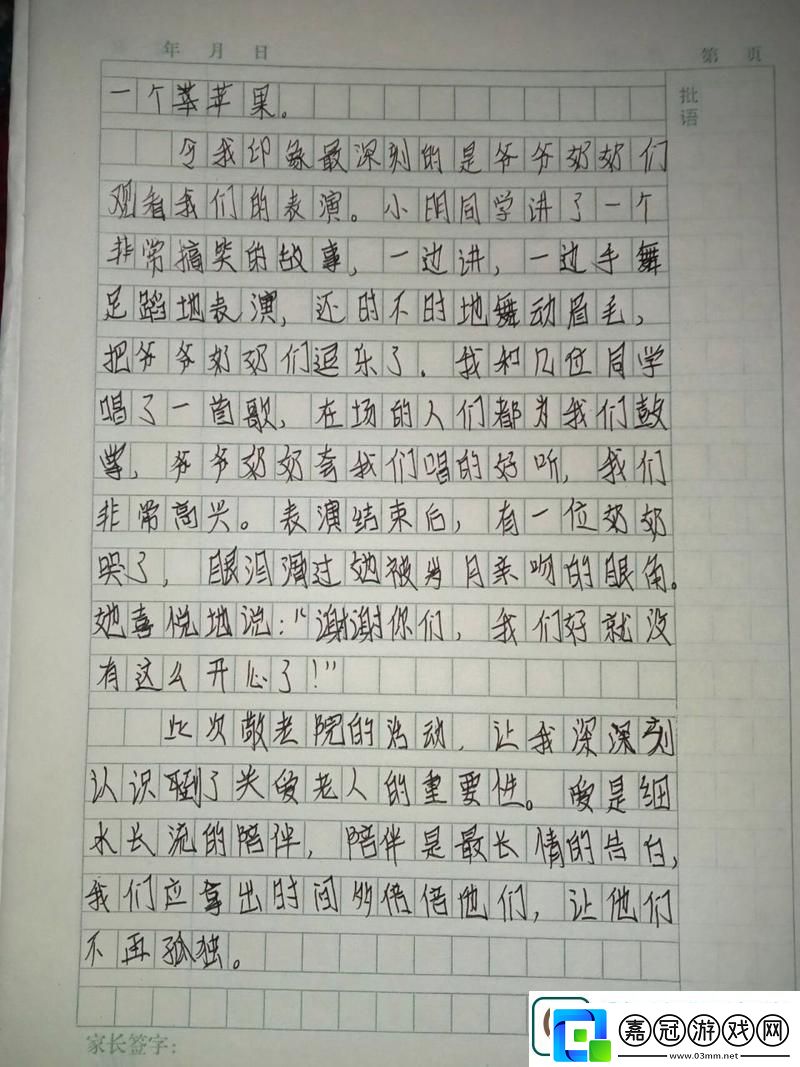 年 月 日 第 页
批语
一个苹苹果。
令我印象最深刻的是爷爷奶奶们
观看我们的表演。小明同学讲了一个
非常搞笑的故事，一边讲，一边手舞
足蹈地表演，还时不时地舞动眉毛，
把爷爷奶奶们逗乐了。我和几位同学
唱了一首歌，在场的人们都为我们鼓
掌，爷爷奶奶夸我们唱的好听，我们
非常高兴。表演结束后，有一位奶奶
哭了，眼泪滑过她被岁月亲吻的眼角。
她喜悦地说：“谢谢你们，我们好就没
有这么开心了！”
此次敬老院的活动，让我深深刻
认识到了关爱老人的重要性。爱是细
水长流的陪伴，陪伴是最长情的告白，
我们应拿出时间多陪陪他们，让他们
不再孤独。
家长签字：
嘉冠游戏网
www.03mm.net